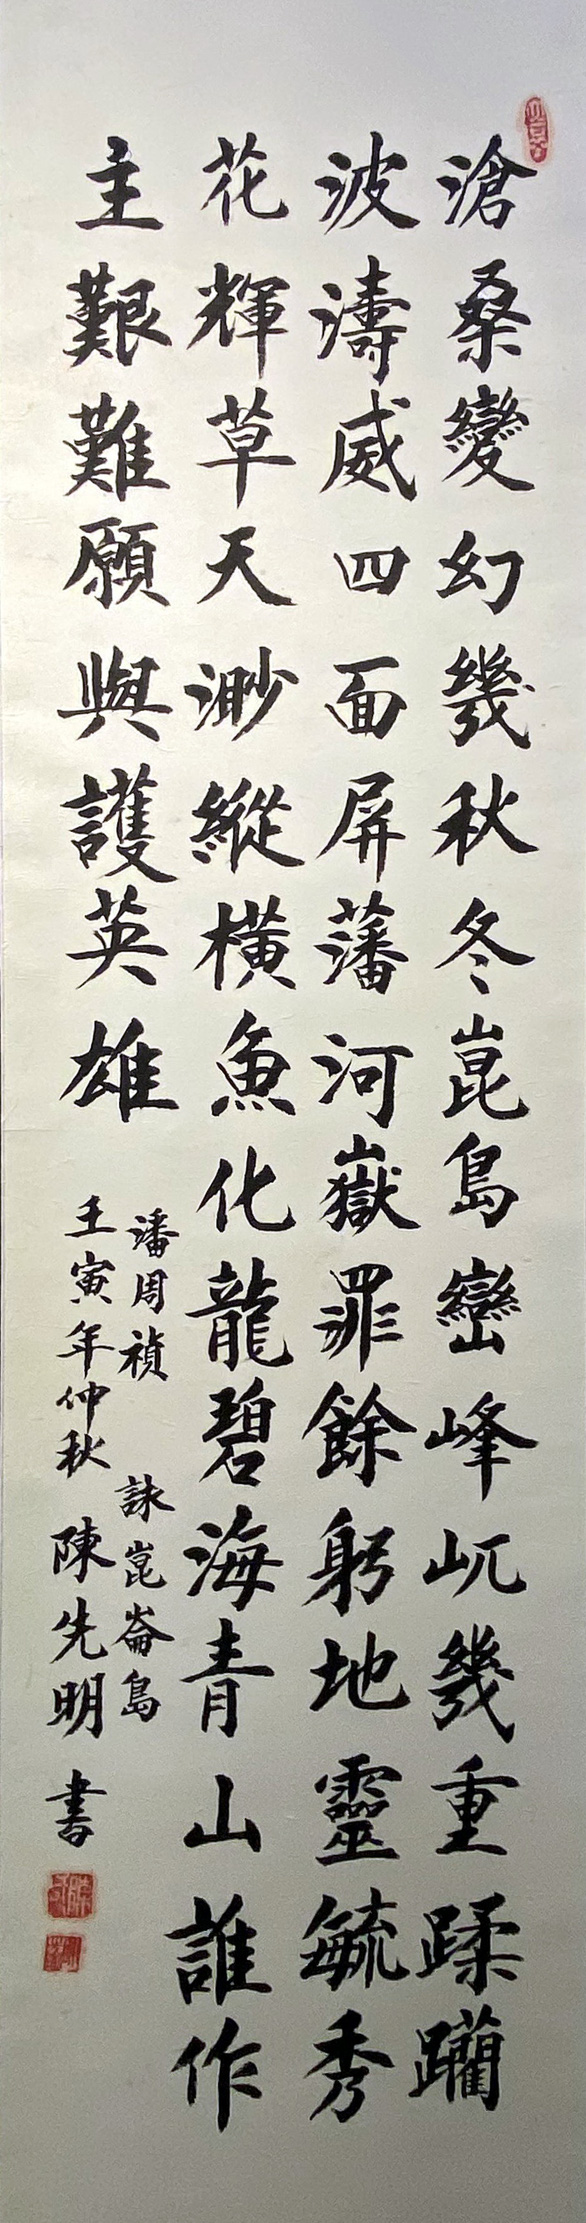 滄桑變幻幾秋冬崑島巒峰屼幾重蹂躪
波濤威四面屏藩河嶽罪餘躬地靈毓秀
花輝草天渺縱橫魚化龍碧海青山誰作
主艱難願與護英雄
潘周禎 詠崑崙島
壬寅年仲秋 陳先明 書